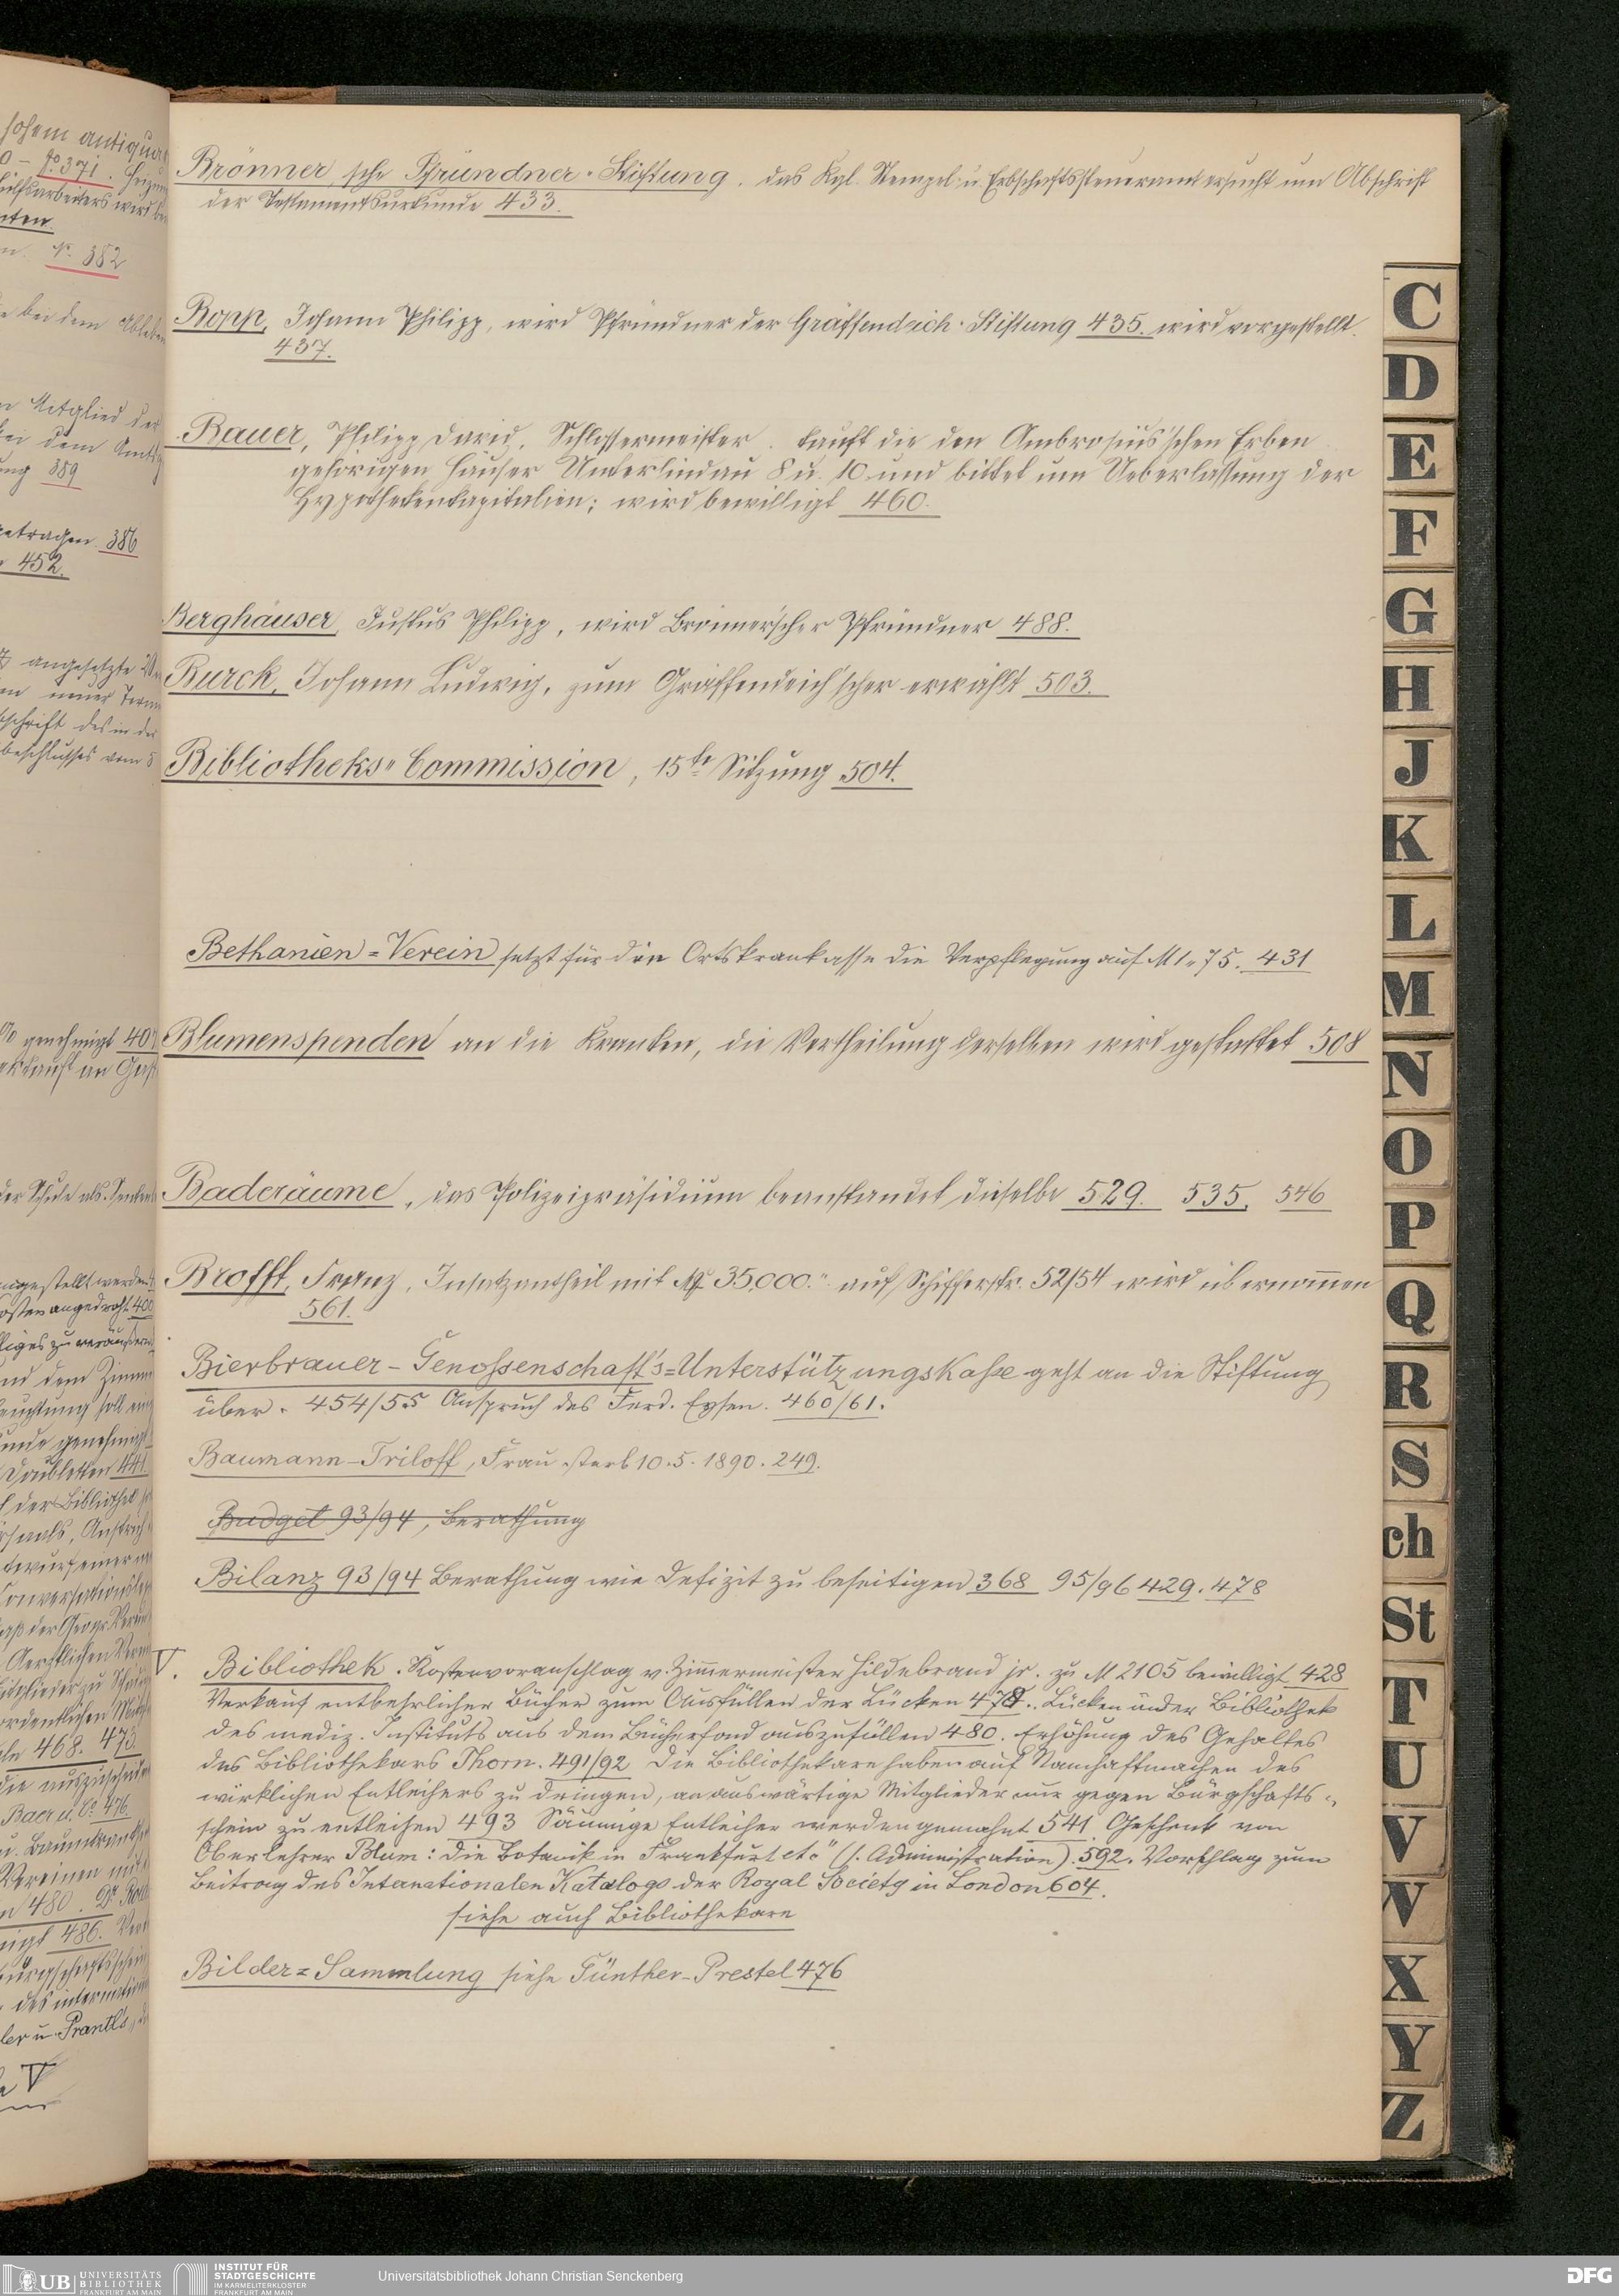 Brönner'sche Pfründner-Stiftung, das Kgl. Stempel- u. Erbschaftssteueramt ersucht um Abschrift
der Testamentsurkunde 433.
Bopp, Johann Philipp, wird Pfründner der Gräffendeich-Stiftung 435. wird vorgestellt.
437.
Bauer, Philipp David, Schlossermeister. kauft die den Ambrosius'schen Erben
gehörigen Häuser Unterlindau 8 u. 10. und bittet um Ueberlassung der
Hypothekenkapitalien; wird bewilligt 460.
Berghäuser, Justus Philipp, wird Brönner'scher Pfründner 488.
Burck, Johann Ludwig, zum Gräffendeich'scher erwählt 503.
Bibliotheks-Commission, 15te Sitzung 504.
Bethanien-Verein setzt für die Ortskrankasse die Verpflegung auf M 1.75. 431
Blumenspenden an die Kranken, die Vertheilung derselben wird gestattet 508
Baderäume, das Polizeipräsidium beanstandet dieselbe 529. 535. 546
Brofft, Franz, Insatzantheil mit M 35,000.- auf Schifferstr. 52/54 wird übernommen
561.
Bierbrauer-Genossenschaft's-UnterstützungsKasse geht an die Stiftung
über. 454/55 Anspruch des Ferd. Eysen. 460/61.
Baumann-Triloff, Frau starb 10.5.1890. 249.
Budget 93/94, Berathung
Bilanz 93/94 Berathung wie Defizit zu beseitigen 368 95/96 429. 478
V. Bibliothek. Kostenvoranschlag v. Zimmermeister Hildebrand jr. zu M 2105 bewilligt 428
Verkauf entbehrlicher Bücher zum Ausfüllen der Lücken 478. Lücken in der Bibliothek
des mediz. Instituts aus dem Bücherfond auszufüllen 480. Erhöhung des Gehaltes
des Bibliothekars Thorn. 491/92 Die Bibliothekare haben auf Namhaftmachen des
wirklichen Entleihers zu dringen, an auswärtige Mitglieder nur gegen Bürgschafts-
schein zu entleihen 493 Säumige Entleiher werden gemahnt 541. Geschenk von
Oberlehrer Blum: "Die Botanik in Frankfurt etc" (s. Administration). 592. Vorschlag zum
Beitrag des Internationalen Katalogs der Royal Society in London 604.
siehe auch Bibliothekare
Bilder-Sammlung siehe Günther-Prestel 476
C
D
E
F
G
H
J
K
L
M
N
O
P
Q
R
S
Sch
St
T
U
V
W
X
Y
Z
UB UNIVERSITÄTS
BIBLIOTHEK
FRANKFURT AM MAIN
INSTITUT FÜR
STADTGESCHICHTE
IM KARMELITERKLOSTER
FRANKFURT AM MAIN
Universitätsbibliothek Johann Christian Senckenberg
DFG